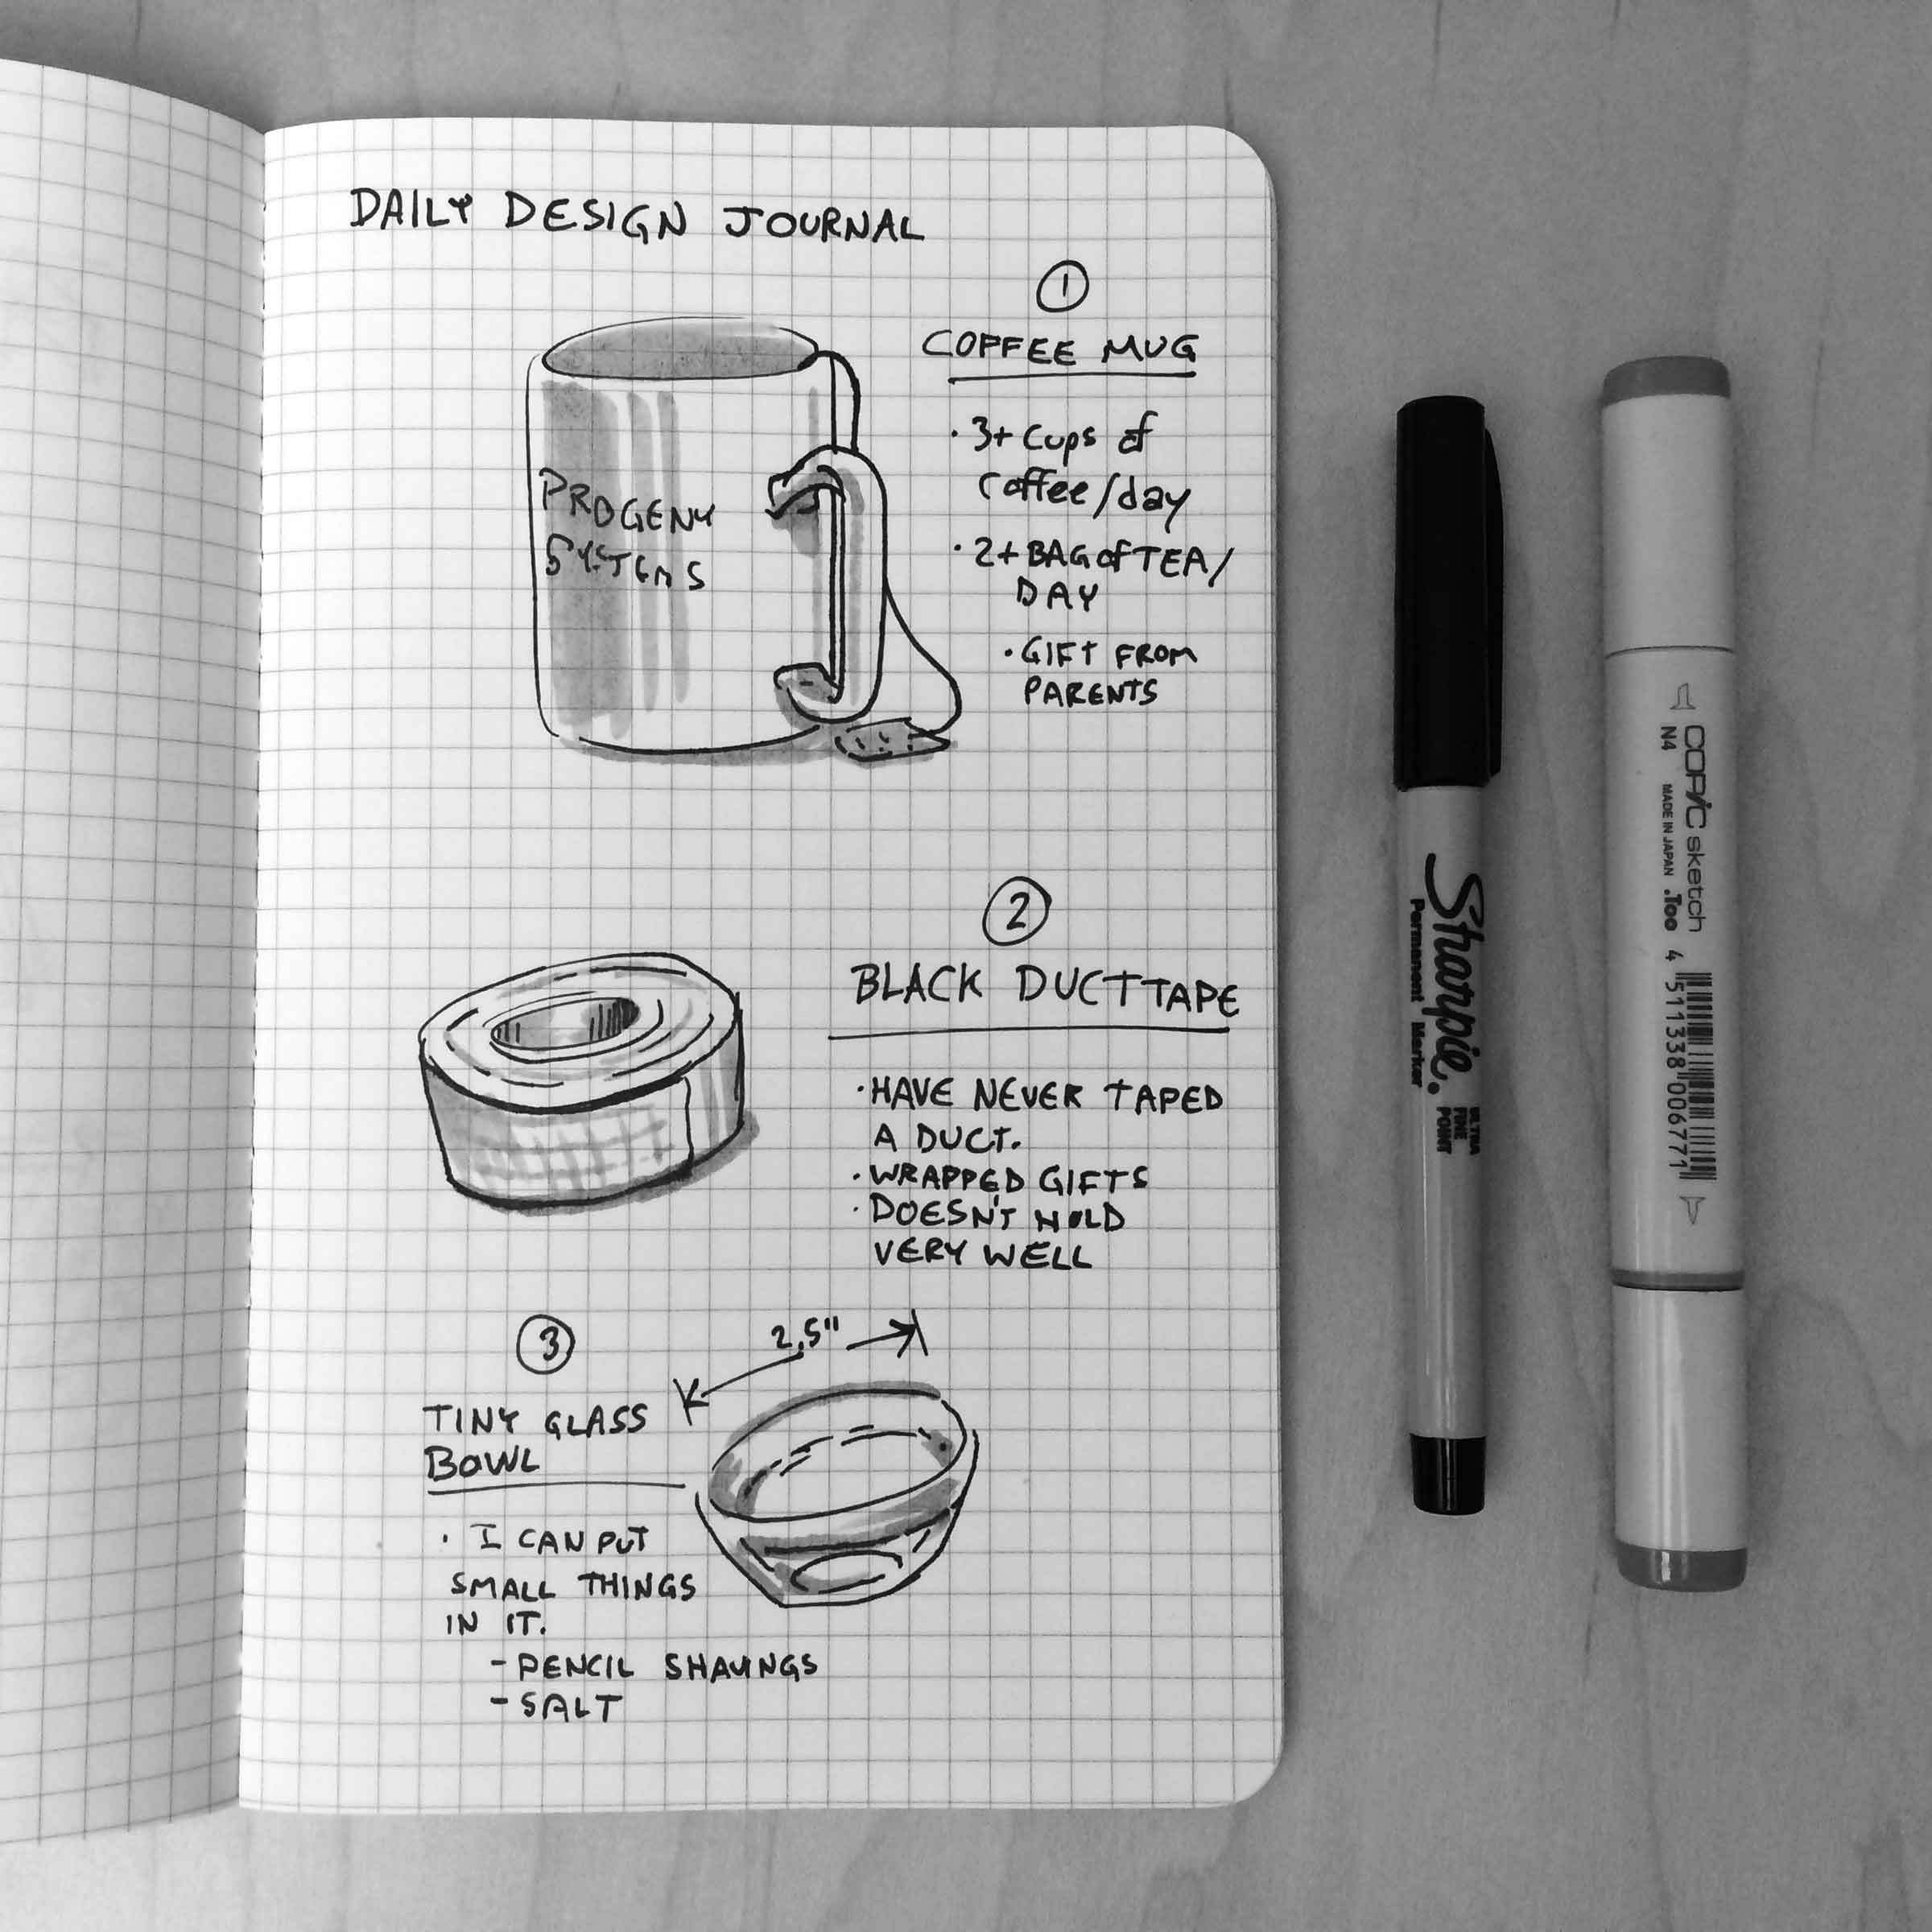 DAILY DESIGN JOURNAL
1
COFFEE MUG
· 3+ Cups of
Coffee/day
· 2+ BAG of TEA/
DAY
· GIFT FROM
PARENTS
PROGENY
SYSTEMS
2
BLACK DUCT TAPE
· HAVE NEVER TAPED
A DUCT.
· WRAPPED GIFTS
· DOESN'T HOLD
VERY WELL
3
2.5"
TINY GLASS
BOWL
· I CAN PUT
SMALL THINGS
IN IT.
- PENCIL SHAVINGS
- SALT
Sharpie.
Permanent Marker
ULTRA
FINE
POINT
COPIC sketch
N4 MADE IN JAPAN .Too
4 511338 006771